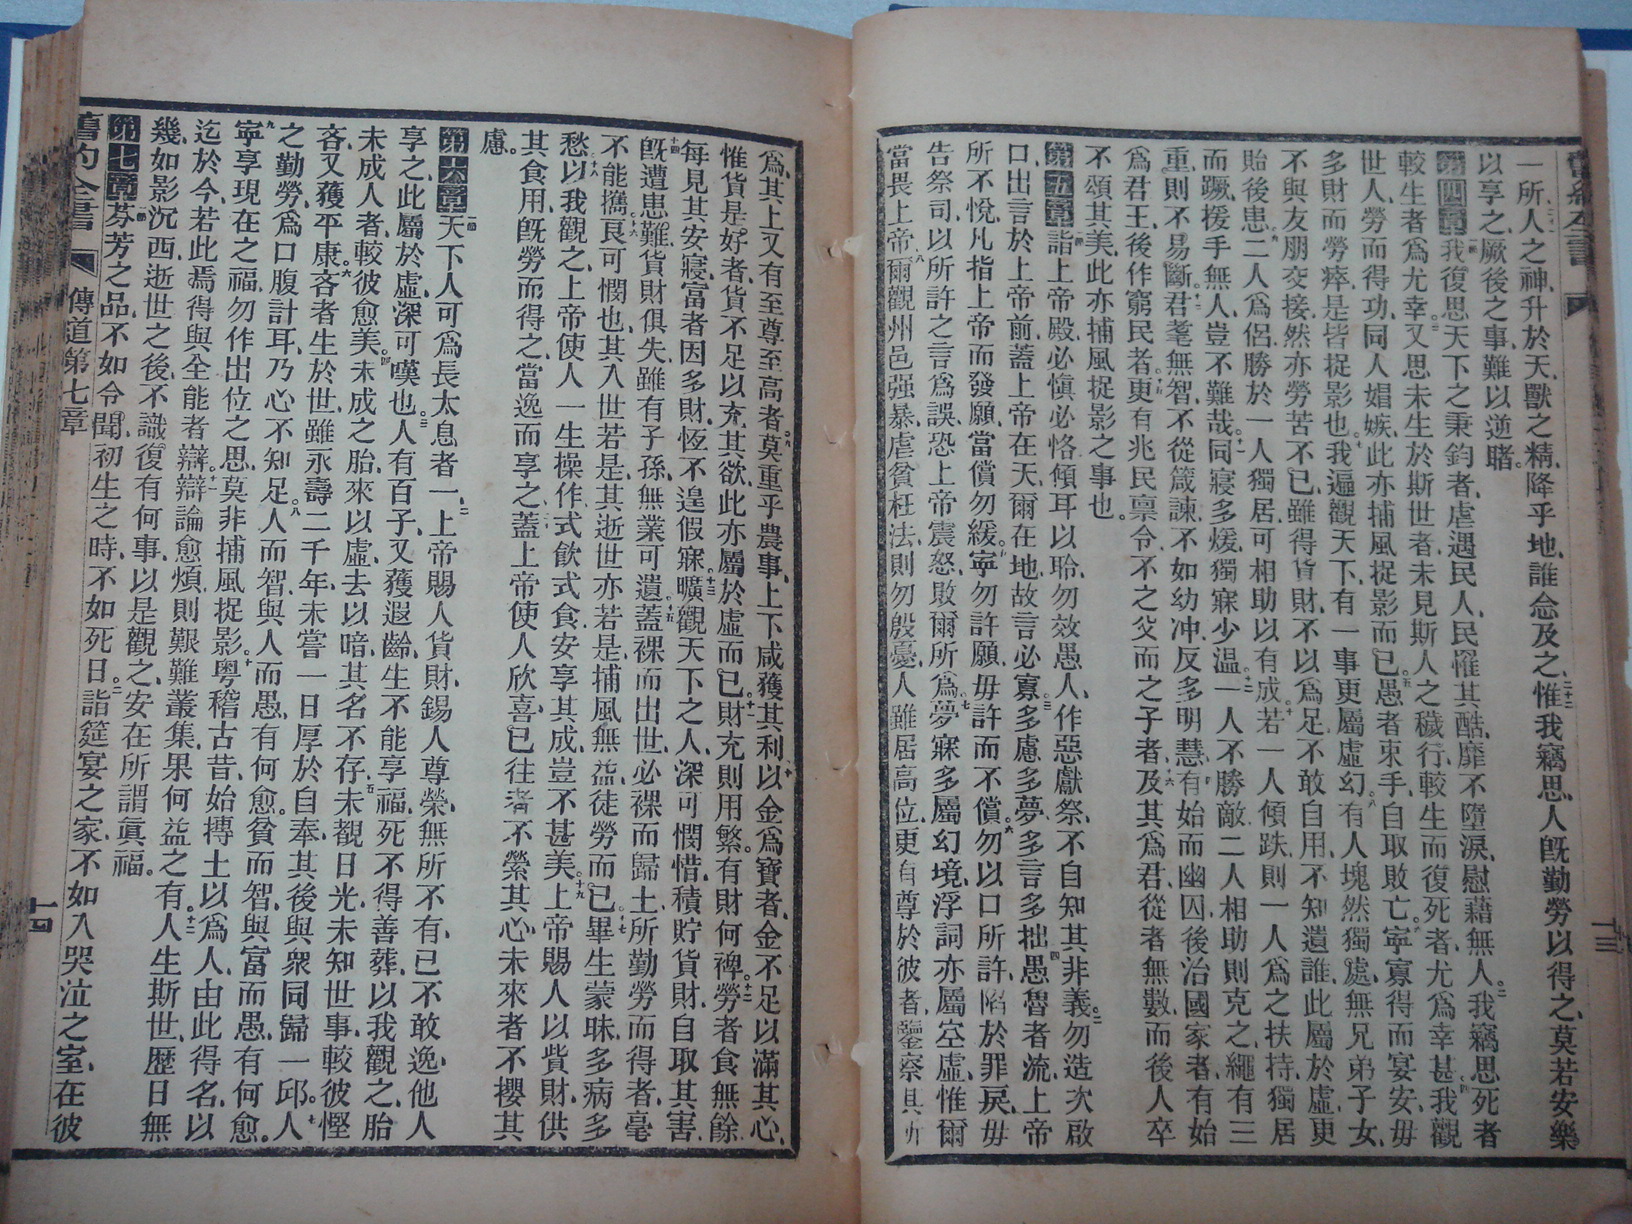 一所人之神升於天獸之精降乎地誰念及之惟我竊思人旣勤勞以得之莫若安樂
以享之厥後之事難以逆睹
第四章我復思天下之秉鈞者虐遇民人民罹其酷靡不墮淚慰藉無人我竊思死者
較生者爲尤幸又思未生於斯世者未見斯人之穢行較生而復死者尤爲幸甚我觀
世人勞而得功同人媢嫉此亦捕風捉影而已愚者束手自取敗亡寧寡得而宴安毋
多財而勞瘁是皆捉影也我遍觀天下有一事更屬虛幻有人塊然獨處無兄弟子女
不與友朋交接然亦勞苦不已雖得貨財不以爲足不敢自用不知遺誰此屬於虛更
貽後患二人爲侶勝於一人獨居可相助以有成若一人傾跌則一人爲之扶持獨居
而蹶援手無人豈不難哉同寢多煖獨寐少温一人不勝敵二人相助則克之繩有三
重則不易斷君耄無智不從箴諫不如幼冲反多明慧有始而幽囚後治國家者有始
爲君王後作窮民者更有兆民禀令不之父而之子者及其爲君從者無數而後人卒
不頌其美此亦捕風捉影之事也
第五章詣上帝殿必愼必恪傾耳以聆勿效愚人作惡獻祭不自知其非義勿造次啟
口出言於上帝前蓋上帝在天爾在地故言必寡多慮多夢多言多拙愚魯者流上帝
所不悅凡指上帝而發願當償勿緩寧勿許願毋許而不償勿以口所許陷於罪戾毋
告祭司以所許之言爲誤恐上帝震怒敗爾所爲夢寐多屬幻境浮詞亦屬空虛惟爾
當畏上帝爾觀州邑强暴虐貧枉法則勿殷憂人雖居高位更有尊於彼者鑒察其所
爲其上又有至尊至高者莫重乎農事上下咸獲其利以金爲寶者金不足以滿其心
惟貨是好者貨不足以充其欲此亦屬於虛而已財充則用繁有財何裨勞者食無餘
每見其安寢富者因多財恆不遑假寐曠觀天下之人深可憫惜積貯貨財自取其害
旣遭患難貨財俱失雖有子孫無業可遺蓋裸而出世必裸而歸土所勤勞而得者毫
不能擕良可憫也其入世若是其逝世亦若是捕風無益徒勞而已畢生蒙昧多病多
愁以我觀之上帝使人一生操作式飲式食安享其成豈不甚美上帝賜人以貲財供
其食用旣勞而得之當逸而享之蓋上帝使人欣喜已往者不縈其心未來者不攖其
慮
第六章天下人可爲長太息者一上帝賜人貨財錫人尊榮無所不有已不敢逸他人
享之此屬於虛深可嘆也人有百子又獲遐齡生不能享福死不得善葬以我觀之胎
未成人者較彼愈美未成之胎來以虛去以暗其名不存未觀日光未知世事較彼慳
吝又獲平康吝者生於世雖永壽二千年未嘗一日厚於自奉其後與衆同歸一邱人
之勤勞爲口腹計耳乃心不知足人而智與人而愚有何愈貧而智與富而愚有何愈
寧享現在之福勿作出位之思莫非捕風捉影粤稽古昔始摶土以爲人由此得名以
迄於今若此焉得與全能者辯辯論愈煩則艱難叢集果何益之有人生斯世歷日無
幾如影沉西逝世之後不識復有何事以是觀之安在所謂眞福
第七章芬芳之品不如令聞初生之時不如死日詣筵宴之家不如入哭泣之室在彼
舊約全書 傳道第七章 十四